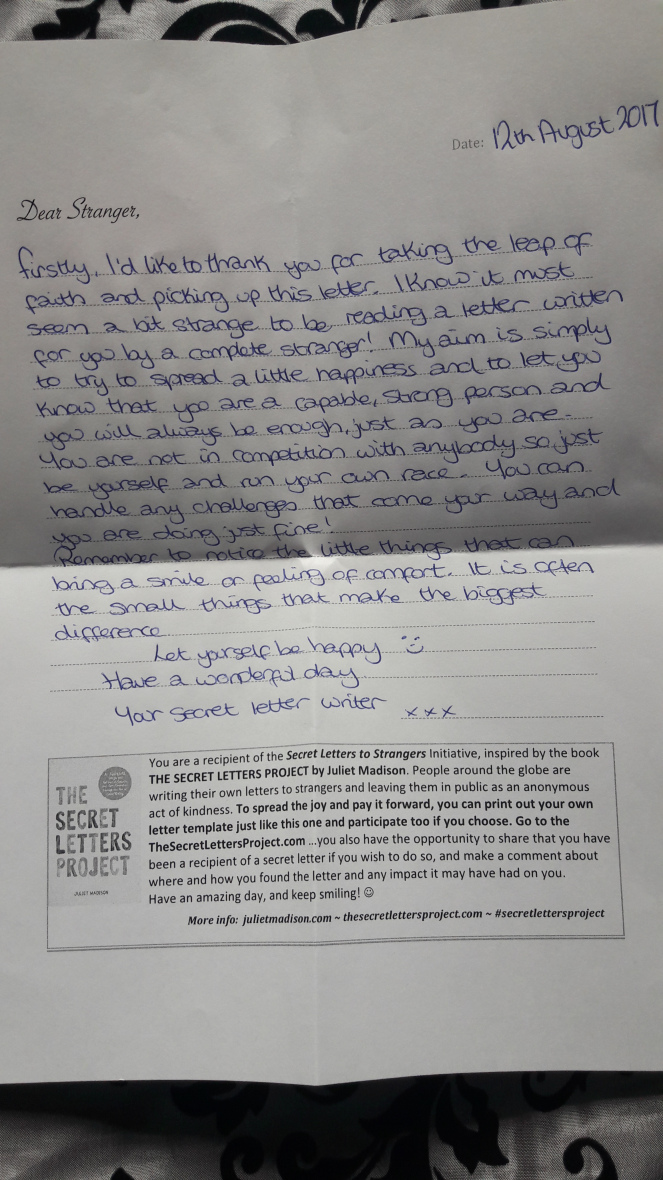 Date: 12th August 2017
Dear Stranger,
firstly, I'd like to thank you for taking the leap of
faith and picking up this letter. I know it must
seem a bit strange to be reading a letter written
for you by a complete stranger! My aim is simply
to try to spread a little happiness and to let you
know that you are a capable, strong person and
you will always be enough, just as you are.
You are not in competition with anybody so just
be yourself and run your own race. You can
handle any challenges that come your way and
you are doing just fine!
Remember to notice the little things that can
bring a smile or feeling of comfort. It is often
the small things that make the biggest
difference
Let yourself be happy ☺
Have a wonderful day
Your secret letter writer xxx
THE
SECRET
LETTERS
PROJECT
JULIET MADISON
You are a recipient of the Secret Letters to Strangers Initiative, inspired by the book
THE SECRET LETTERS PROJECT by Juliet Madison. People around the globe are
writing their own letters to strangers and leaving them in public as an anonymous
act of kindness. To spread the joy and pay it forward, you can print out your own
letter template just like this one and participate too if you choose. Go to the
TheSecretLettersProject.com ...you also have the opportunity to share that you have
been a recipient of a secret letter if you wish to do so, and make a comment about
where and how you found the letter and any impact it may have had on you.
Have an amazing day, and keep smiling! ☺
More info: julietmadison.com ~ thesecretlettersproject.com ~ #secretlettersproject